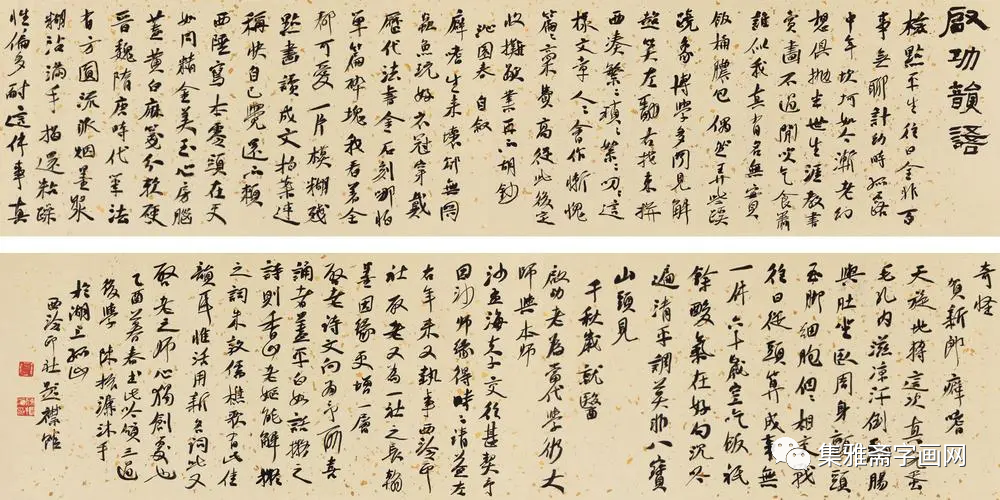 啟功韻語
檢點平生往日全非百
事無聊計幼時孤露
中年坎坷如今漸老幻
想俱拋半世生涯教書
賣畫不過閒吹乞食簫
誰似我真有名無實
飯桶膿包 偶然弄些蹊
蹺像博學多聞見解
超笑左翻右找東拼
西湊繁繁瑣瑣絮絮叨叨這
樣文章人人會作慚愧
篇篇稿費高從此後定
收攤歇業再不胡鈔
沁園春 自敘
癖嗜生來壞卻無關
蟲魚玩好衣冠穿戴
歷代法書金石刻哪怕
單篇碎塊我看著全
都可愛一片模糊殘
點畫讀成文拍案連
稱快自己覺還不賴
西陲寫本零頭在更
如同精金美玉心房腦
蓋黃白麻箋分軟硬
晉魏隋唐時代筆法
有方圓流派煙墨漿
糊沾滿手揩還粘躁
性偏多耐這件事真
奇怪
賀新郎 癖嗜
天旋地轉這次真
毛孔內滋涼汗倒翻腸
與肚坐臥周身顫頭
至腳細胞個個相戰
往日從頭算成事無
一件六十歲空吃飯祇
餘酸氣在好句沉吟
遍清平調莫非八寶
山頭見
千秋歲 就醫
啟功老為當代學術大
師與本師
沙孟海夫子交往甚契予
因沙師緣得時時請益左
右年來又執事西泠印
社啟老又為一社之長翰
墨因緣更增一層
啟老詩文向為予所喜
誦者蓋平白如話擬之
詩則香山老嫗能解擬
之詞朱敦儒樵歌有此佳
韻耳惟活用新名詞此又
啟老之師心獨創處也
乙酉暮春書此吟頌三過
後學 陳振濂沐手
於湖上孤山
西泠印社題襟館
集雅斋字画网